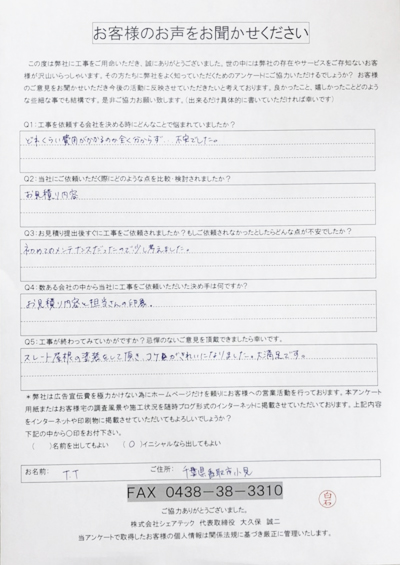 お客様のお声をお聞かせください
この度は弊社に工事をご用命いただき、誠にありがとうございました。世の中には弊社の存在やサービスをご存知ないお客
様が沢山いらっしゃいます。その方たちに弊社をよく知っていただくためのアンケートにご協力いただけるでしょうか? お客様
のご意見をお聞かせいただき今後の活動に反映させていただきたいと考えております。良かったこと、嬉しかったことどのよう
な些細な事でも結構です。是非ご協力お願い致します。(出来るだけ具体的に書いていただければ幸いです)
Q1:工事を依頼する会社を決める時にどんなことで悩まれていましたか?
どれくらい費用がかかるのか全く分からず 不安でした。
Q2:当社にご依頼いただく際にどのような点を比較・検討されましたか?
お見積り内容
Q3:お見積り提出後すぐに工事をご依頼されましたか?もしご依頼されなかったとしたらどんな点が不安でしたか?
初めてのメンテナンスだったので少し考えました。
Q4:数ある会社の中から当社に工事をご依頼いただいた決め手は何ですか?
お見積り内容と担当さんの印象。
Q5:工事が終わってみていかがですか?忌憚のないご意見を頂戴できましたら幸いです。
スレート屋根の塗装をして頂き、コケがきれいになりました。大満足です。
*弊社は広告宣伝費を極力かけない為にホームページだけを頼りにお客様への営業活動を行っております。本アンケート
用紙またはお客様宅の調査風景や施工状況を随時ブログ形式のインターネットに掲載させていただいております。上記内容
をインターネットや印刷物に掲載させていただいてもよろしいでしょうか?
下記の中から○印をお付下さい。
( )名前を出してもよい (○)イニシャルなら出してもよい
お名前: T T ご住所: 千葉県香取市小見
FAX 0438-38-3310
白石
ご協力ありがとうございました。
株式会社シェアテック 代表取締役 大久保 誠二
当アンケートで取得したお客様の個人情報は関係法規に基づき厳正に管理いたします。